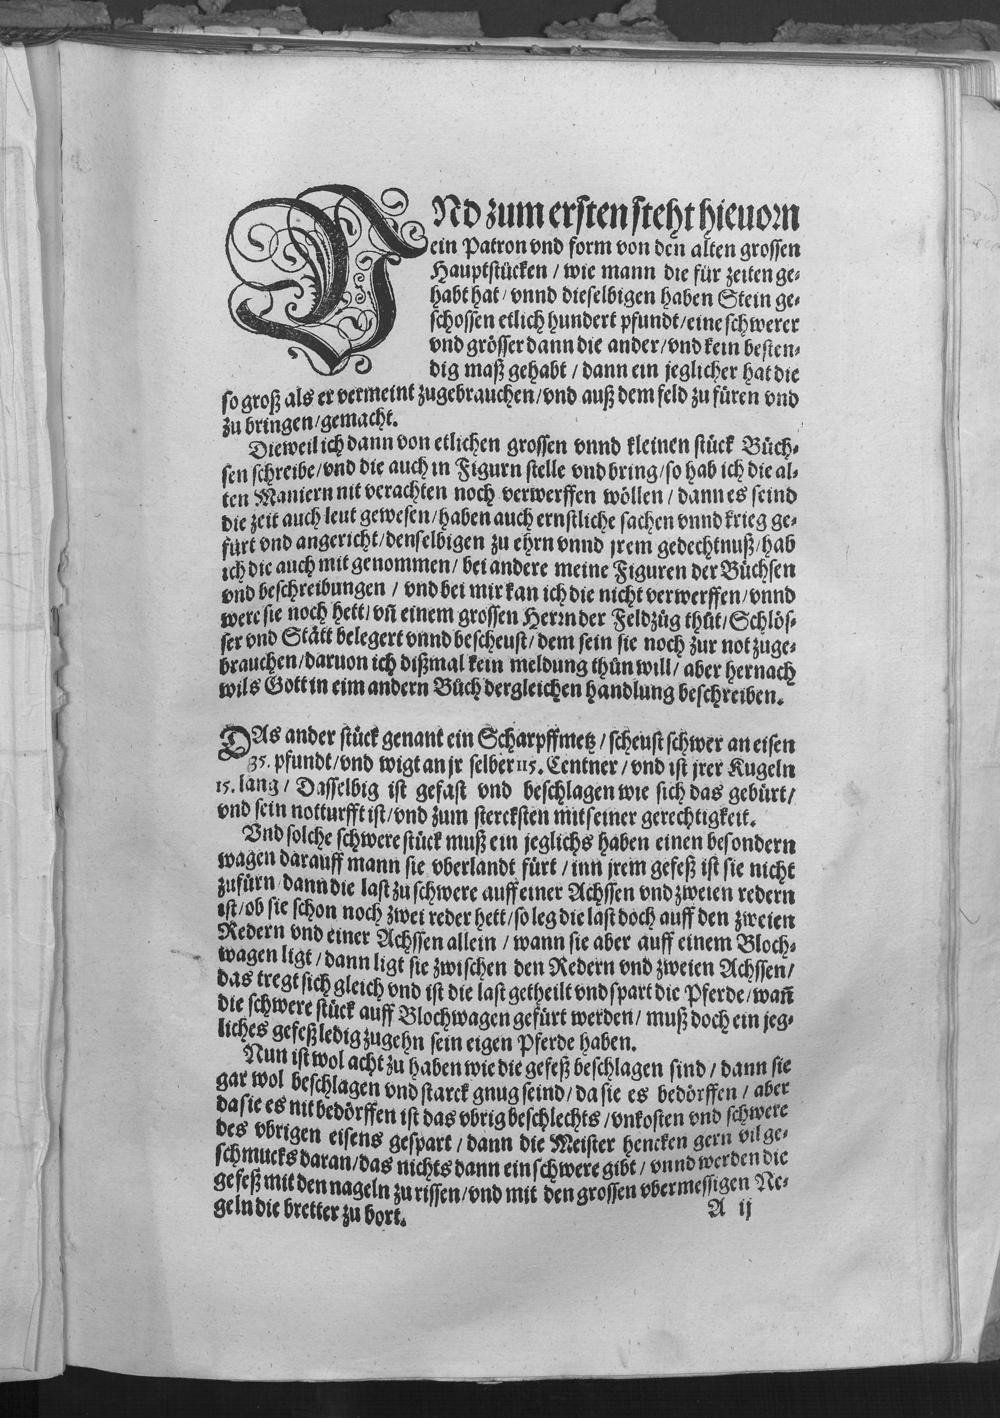 VNd zum ersten steht hieuorn
ein Patron vnd form von den alten grossen
Hauptstücken / wie mann die für zeiten ge⸗
habt hat / vnnd dieselbigen haben Stein ge⸗
schossen etlich hundert pfundt / eine schwerer
vnd grösser dann die ander / vnd kein besten⸗
dig maß gehabt / dann ein jeglicher hat die
so groß als er vermeint zugebrauchen / vnd auß dem feld zu füren vnd
zu bringen / gemacht.
Dieweil ich dann von etlichen grossen vnnd kleinen stück Büch⸗
sen schreibe / vnd die auch in Figurn stelle vnd bring / so hab ich die al⸗
ten Maniern nit verachten noch verwerffen wöllen / dann es seind
die zeit auch leut gewesen / haben auch ernstliche sachen vnnd krieg ge⸗
fürt vnd angericht / denselbigen zu ehrn vnnd jrem gedechtnuß / hab
ich die auch mit genommen / bei andere meine Figuren der Büchsen
vnd beschreibungen / vnd bei mir kan ich die nicht verwerffen / vnnd
were sie noch hett / vñ einem grossen Herrn der Feldzüg thüt / Schlös⸗
ser vnd Stätt belegert vnnd bescheust / dem sein sie noch zur not zuge⸗
brauchen / daruon ich dißmal kein meldung thün will / aber hernach
wils Gott in eim andern Büch dergleichen handlung beschreiben.
DAs ander stück genant ein Scharpffmetz / scheust schwer an eisen
35. pfundt / vnd wigt an jr selber 115. Centner / vnd ist jrer Kugeln
15. lang / Dasselbig ist gefast vnd beschlagen wie sich das gebürt /
vnd sein notturfft ist / vnd zum stercksten mit seiner gerechtigkeit.
Vnd solche schwere stück muß ein jeglichs haben einen besondern
wagen darauff mann sie vberlandt fürt / inn jrem gefeß ist sie nicht
zufürn / dann die last zu schwere auff einer Achssen vnd zweien redern
ist / ob sie schon noch zwei reder hett / so leg die last doch auff den zweien
Redern vnd einer Achssen allein / wann sie aber auff einem Bloch⸗
wagen ligt / dann ligt sie zwischen den Redern vnd zweien Achssen /
das tregt sich gleich vnd ist die last getheilt vnd spart die Pferde / wañ
die schwere stück auff Blochwagen gefürt werden / muß doch ein jeg⸗
liches gefeß ledig zugehn sein eigen Pferde haben.
Nun ist wol acht zu haben wie die gefeß beschlagen sind / dann sie
gar wol beschlagen vnd starck gnug seind / da sie es bedörffen / aber
da sie es nit bedörffen ist das vbrig beschlechts / vnkosten vnd schwere
des vbrigen eisens gespart / dann die Meister hencken gern vil ge⸗
schmucks daran / das nichts dann ein schwere gibt / vnnd werden die
gefeß mit den nageln zu rissen / vnd mit den grossen vbermessigen Ne⸗
geln die bretter zu bort.
A ij